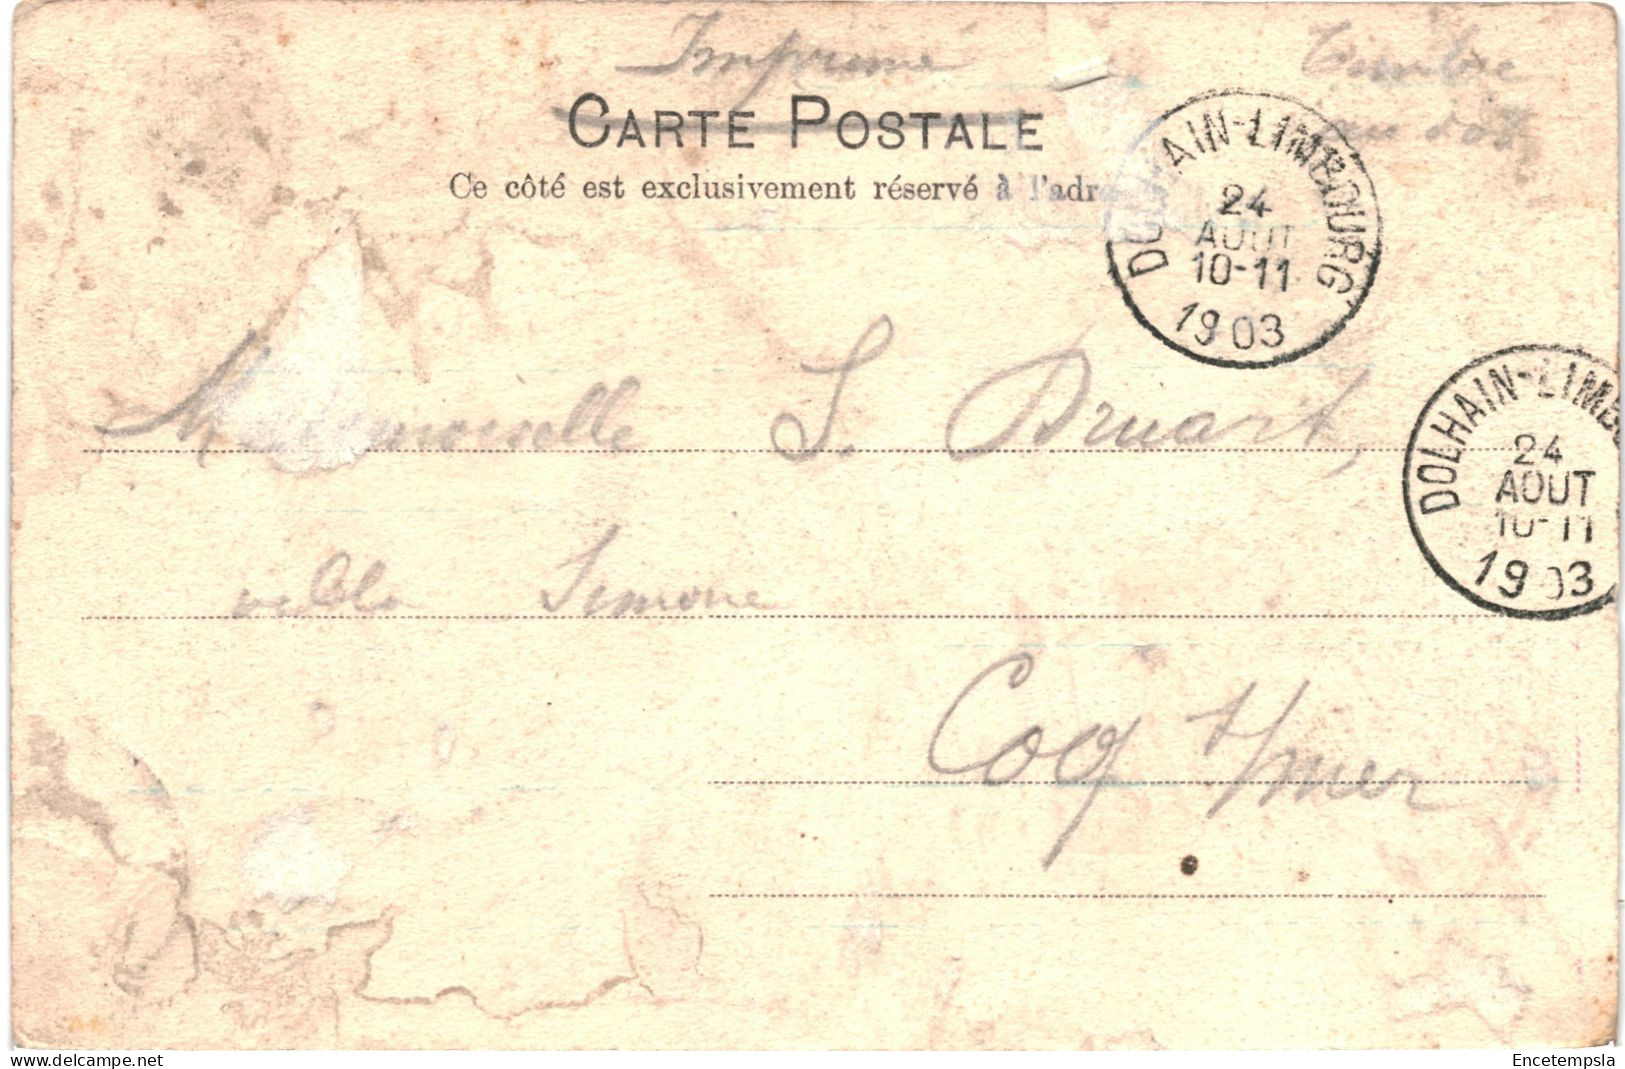 Imprimé
Timbre
au dos
CARTE POSTALE
Ce côté est exclusivement réservé à l'adr
DOLHAIN-LIMBOURG
24
AOUT
10-11
1903
Mademoiselle S. Druart,
DOLHAIN-LIMBO
24
AOUT
10-11
1903
villa Simone
Coq s/mer
www.delcampe.net
Encetempsla